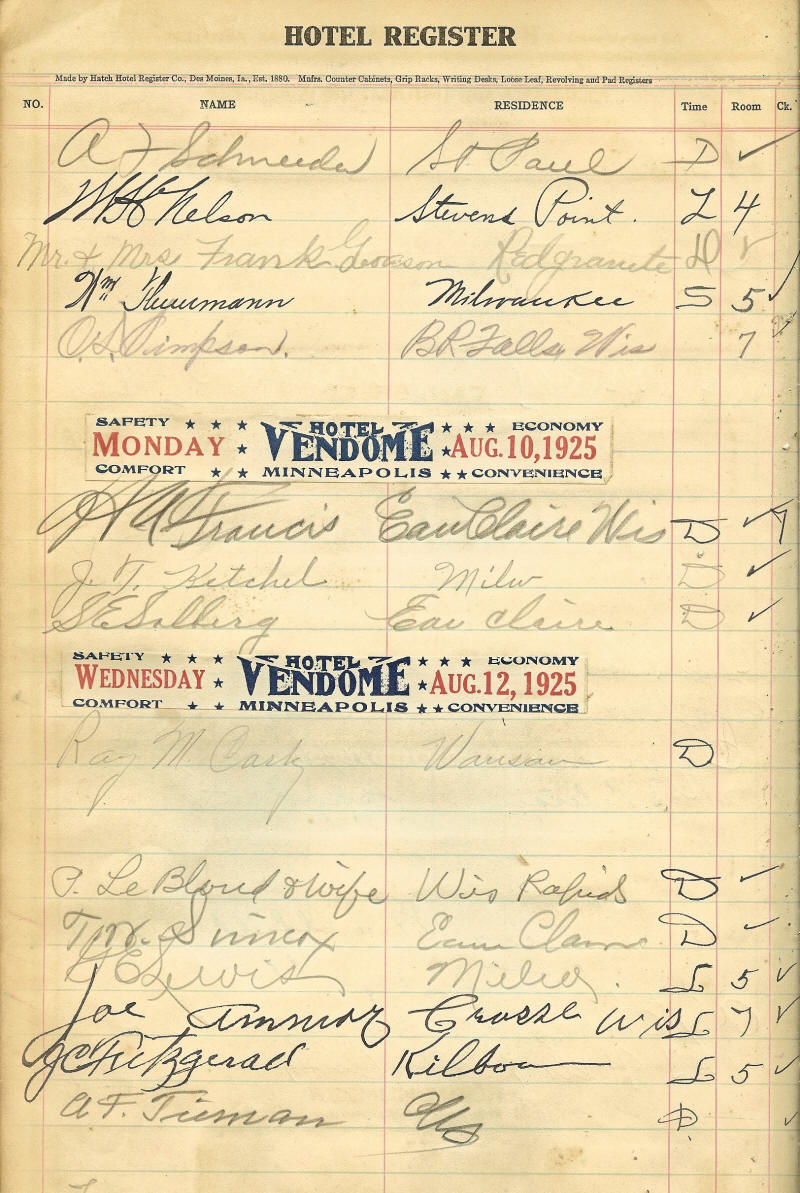 HOTEL REGISTER
Made by Hatch Hotel Register Co., Des Moines, Ia., Est. 1880. Mnfrs. Counter Cabinets, Grip Racks, Writing Desks, Loose Leaf, Revolving and Pad Registers
NO. NAME RESIDENCE Time Room Ck.
A J Schneeder St Paul D ✓
W H Nelson Stevens Point. L 4
Mr. & Mrs Frank Redgranite D ✓
Wm Milwaukee S 5 ✓
O. L. Simpson. B R Falls, Wis 7
SAFETY ★ ★ ★ HOTEL ★ ★ ★ ECONOMY
MONDAY ★ VENDOME ★ AUG. 10, 1925
COMFORT ★ ★ MINNEAPOLIS ★ ★ CONVENIENCE
Francis Eau Claire Wis D ✓ 7
J. T. Ketchel Milw D ✓
S E Solberg Eau Claire D ✓
SAFETY ★ ★ ★ HOTEL ★ ★ ★ ECONOMY
WEDNESDAY ★ VENDOME ★ AUG. 12, 1925
COMFORT ★ ★ MINNEAPOLIS ★ ★ CONVENIENCE
Ray M. Wausau D
P. Le Blond & Wife Wis Rapids D ✓
T. W. Simcox Eau Claire D ✓
Lewis L 5 ✓
Joe Crosse Wis L 7 ✓
J C Fitzgerald Kilbourn L 5 ✓
A. F. Tieman D ✓